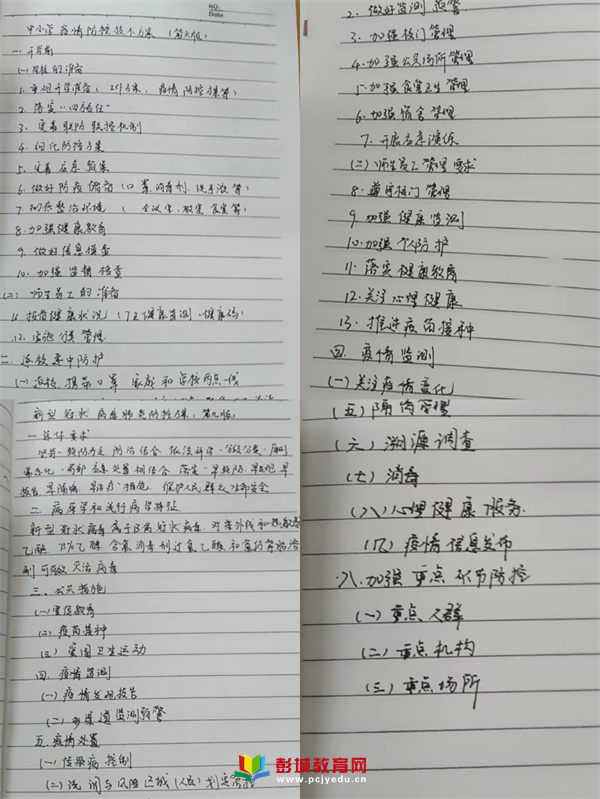 NO.
Date
中小学疫情防控技术方案（第五版）
一.开学前
(一)学校的准备
1.重视开学准备（工作方案、疫情防控预案等）
2.落实“四方责任”
3.完善联防联控机制
4.细化防控方案
5.完善应急预案
6.做好防疫储备（口罩、消毒剂、洗手液等）
7.彻底整治环境（会议室、教室、食堂等）
8.加强健康教育
9.做好信息摸查
10.加强监督检查
(二)师生员工的准备
11.按指健康状况（7天健康监测、健康码）
12.实施分类管理
二.返校途中防护
(一)返校、携带口罩 家庭和学校两点一线
2.做好监测预警
3.加强校门管理
4.加强公共场所管理
5.加强食堂卫生管理
6.加强宿舍管理
7.开展应急演练
(二)师生员工管理要求
8.遵守校门管理
9.加强健康监测
10.加强个人防护
11.落实健康教育
12.关注心理健康
13.推进疫苗接种
四.疫情监测
(一)关注疫情变化
新型冠状病毒肺炎防控方案.第九版
一.总体要求
坚持“预防为主、防治结合、依法科学、分级分类”原则
常态化、局部应急处置相结合 落实“早预防、早发现、早
报告、早隔离、早治疗”措施 维护人民群众生命安全
二.病原学和流行病学特征
新型冠状病毒属于β属冠状病毒.对紫外线和热敏感
乙醚、75%乙醇、含氯消毒剂过氧乙酸和氯仿等脂溶
剂可有效灭活病毒
三、公共措施
(一)宣传教育
(二)疫苗接种
(三)爱国卫生运动
四.疫情监测
(一)疫情发现报告
(二)多渠道监测预警
五.疫情处置
(一)传染源控制
(二)流调与风险区域（人员）划定管控
(五)隔离管理
(六)溯源调查
(七)消毒
(八)心理健康服务
(九)疫情信息发布
八.加强重点环节防控
(一)重点人群
(二)重点机构
(三)重点场所
彭城教育网
www.pcjyedu.cn